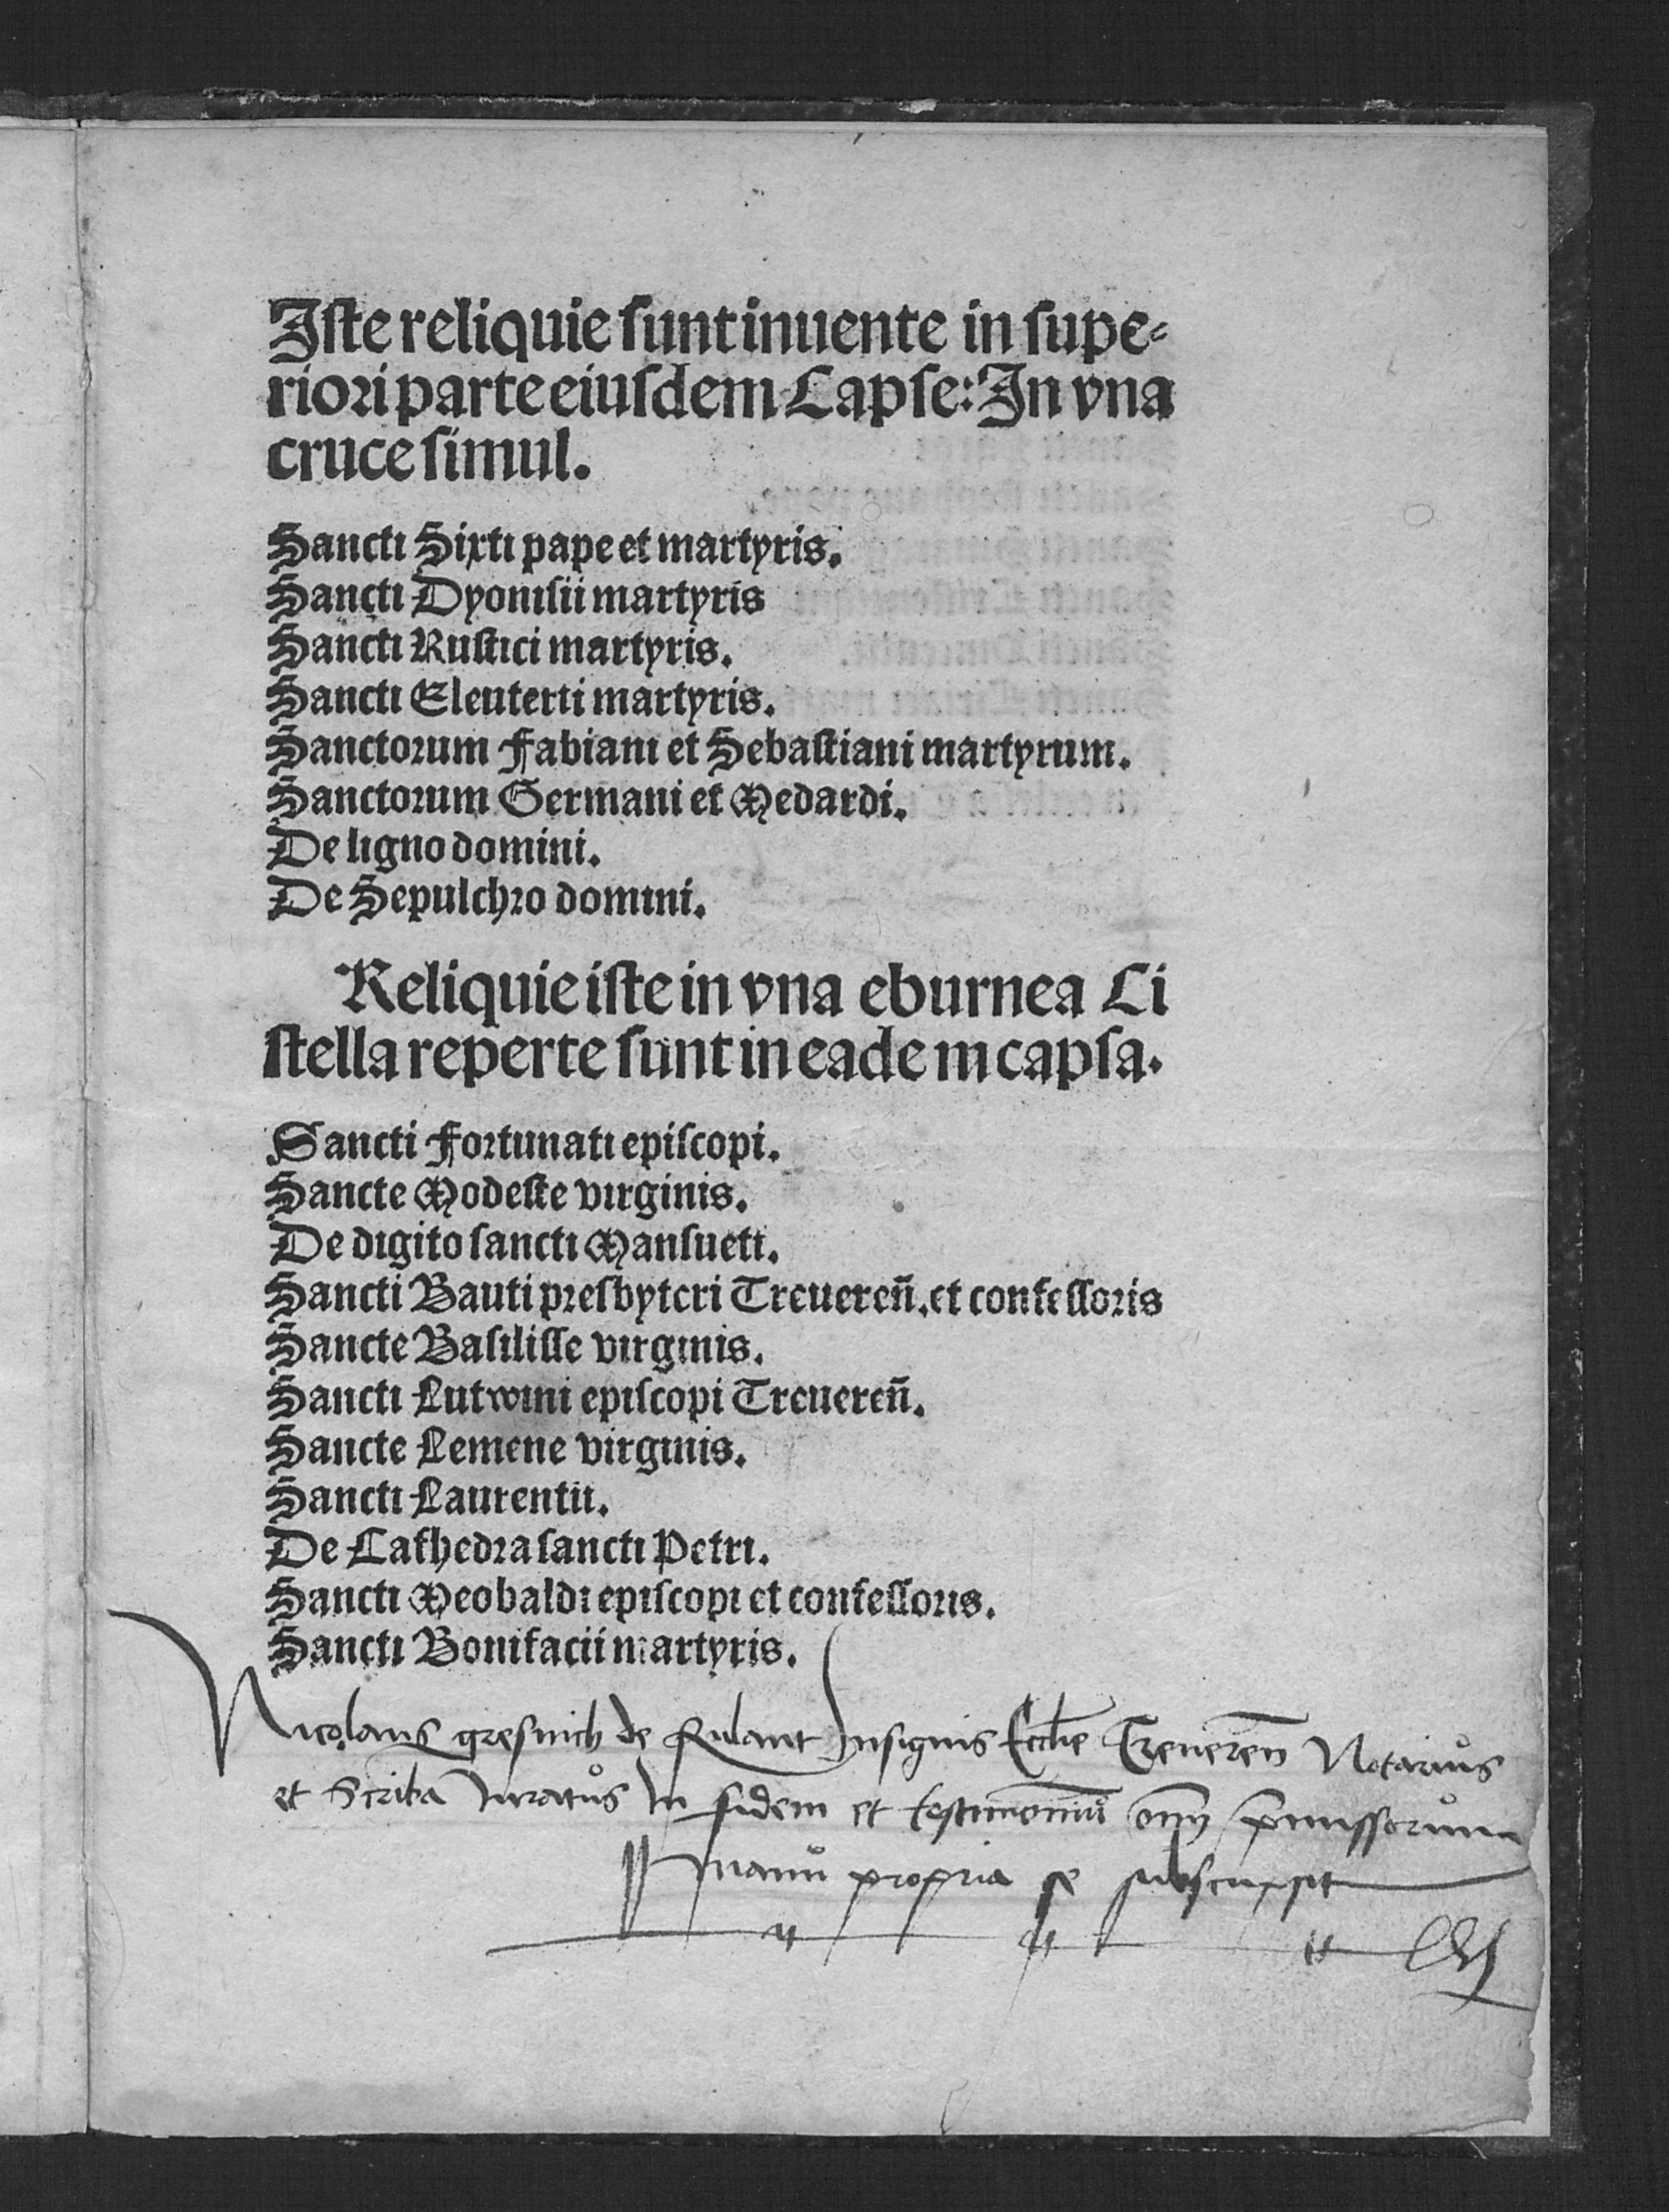 Iste reliquie sunt inuente in supe-
riori parte eiusdem Capse: In vna
cruce simul.
Sancti Sixti pape et martyris.
Sancti Dyonisii martyris
Sancti Rustici martyris.
Sancti Eleuterii martyris.
Sanctorum Fabiani et Sebastiani martyrum.
Sanctorum Germani et Medardi.
De ligno domini.
De Sepulchro domini.
Reliquie iste in vna eburnea Ci
stella reperte sunt in eadem capsa.
Sancti Fortunati episcopi.
Sancte Modeste virginis.
De digito sancti Mansueti.
Sancti Bauti presbyteri Treuereñ. et confessoris
Sancte Basilisse virginis.
Sancti Lutwini episcopi Treuereñ.
Sancte Lemene virginis.
Sancti Laurentii.
De Cathedra sancti Petri.
Sancti Meobaldi episcopi et confessoris.
Sancti Bonifacii martyris.
Nicolaus de Rulant Insignis Ecclie Treueren Notarius
et Scriba Juratus In fidem et testimoniu om̄ p̄missorum
manu propria se subscripsit